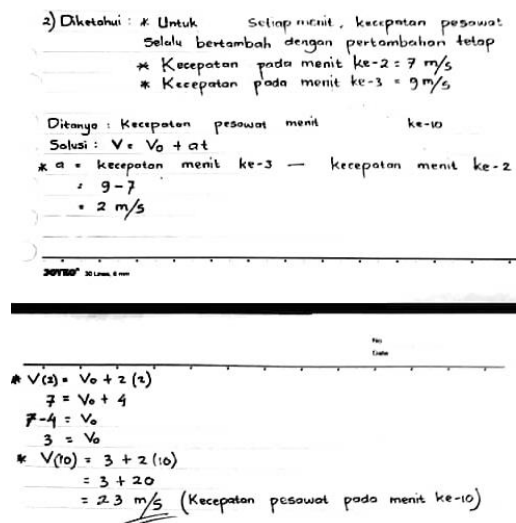 2) Diketahui : * Untuk Setiap menit, kecepatan pesawat
Selalu bertambah dengan pertambahan tetap
* Kecepatan pada menit ke-2 = 7 m/s
* Kecepatan pada menit ke-3 = 9 m/s
Ditanya : Kecepatan pesawat menit ke-10
Solusi : V = V0 + at
* a = kecepatan menit ke-3 — kecepatan menit ke-2
= 9-7
= 2 m/s
JOYKO 30 Lines, 6 mm
No
Date
* V(2) = V0 + 2 (2)
7 = V0 + 4
7-4 = V0
3 = V0
* V(10) = 3 + 2 (10)
= 3 + 20
= 23 m/s (Kecepatan pesawat pada menit ke-10)